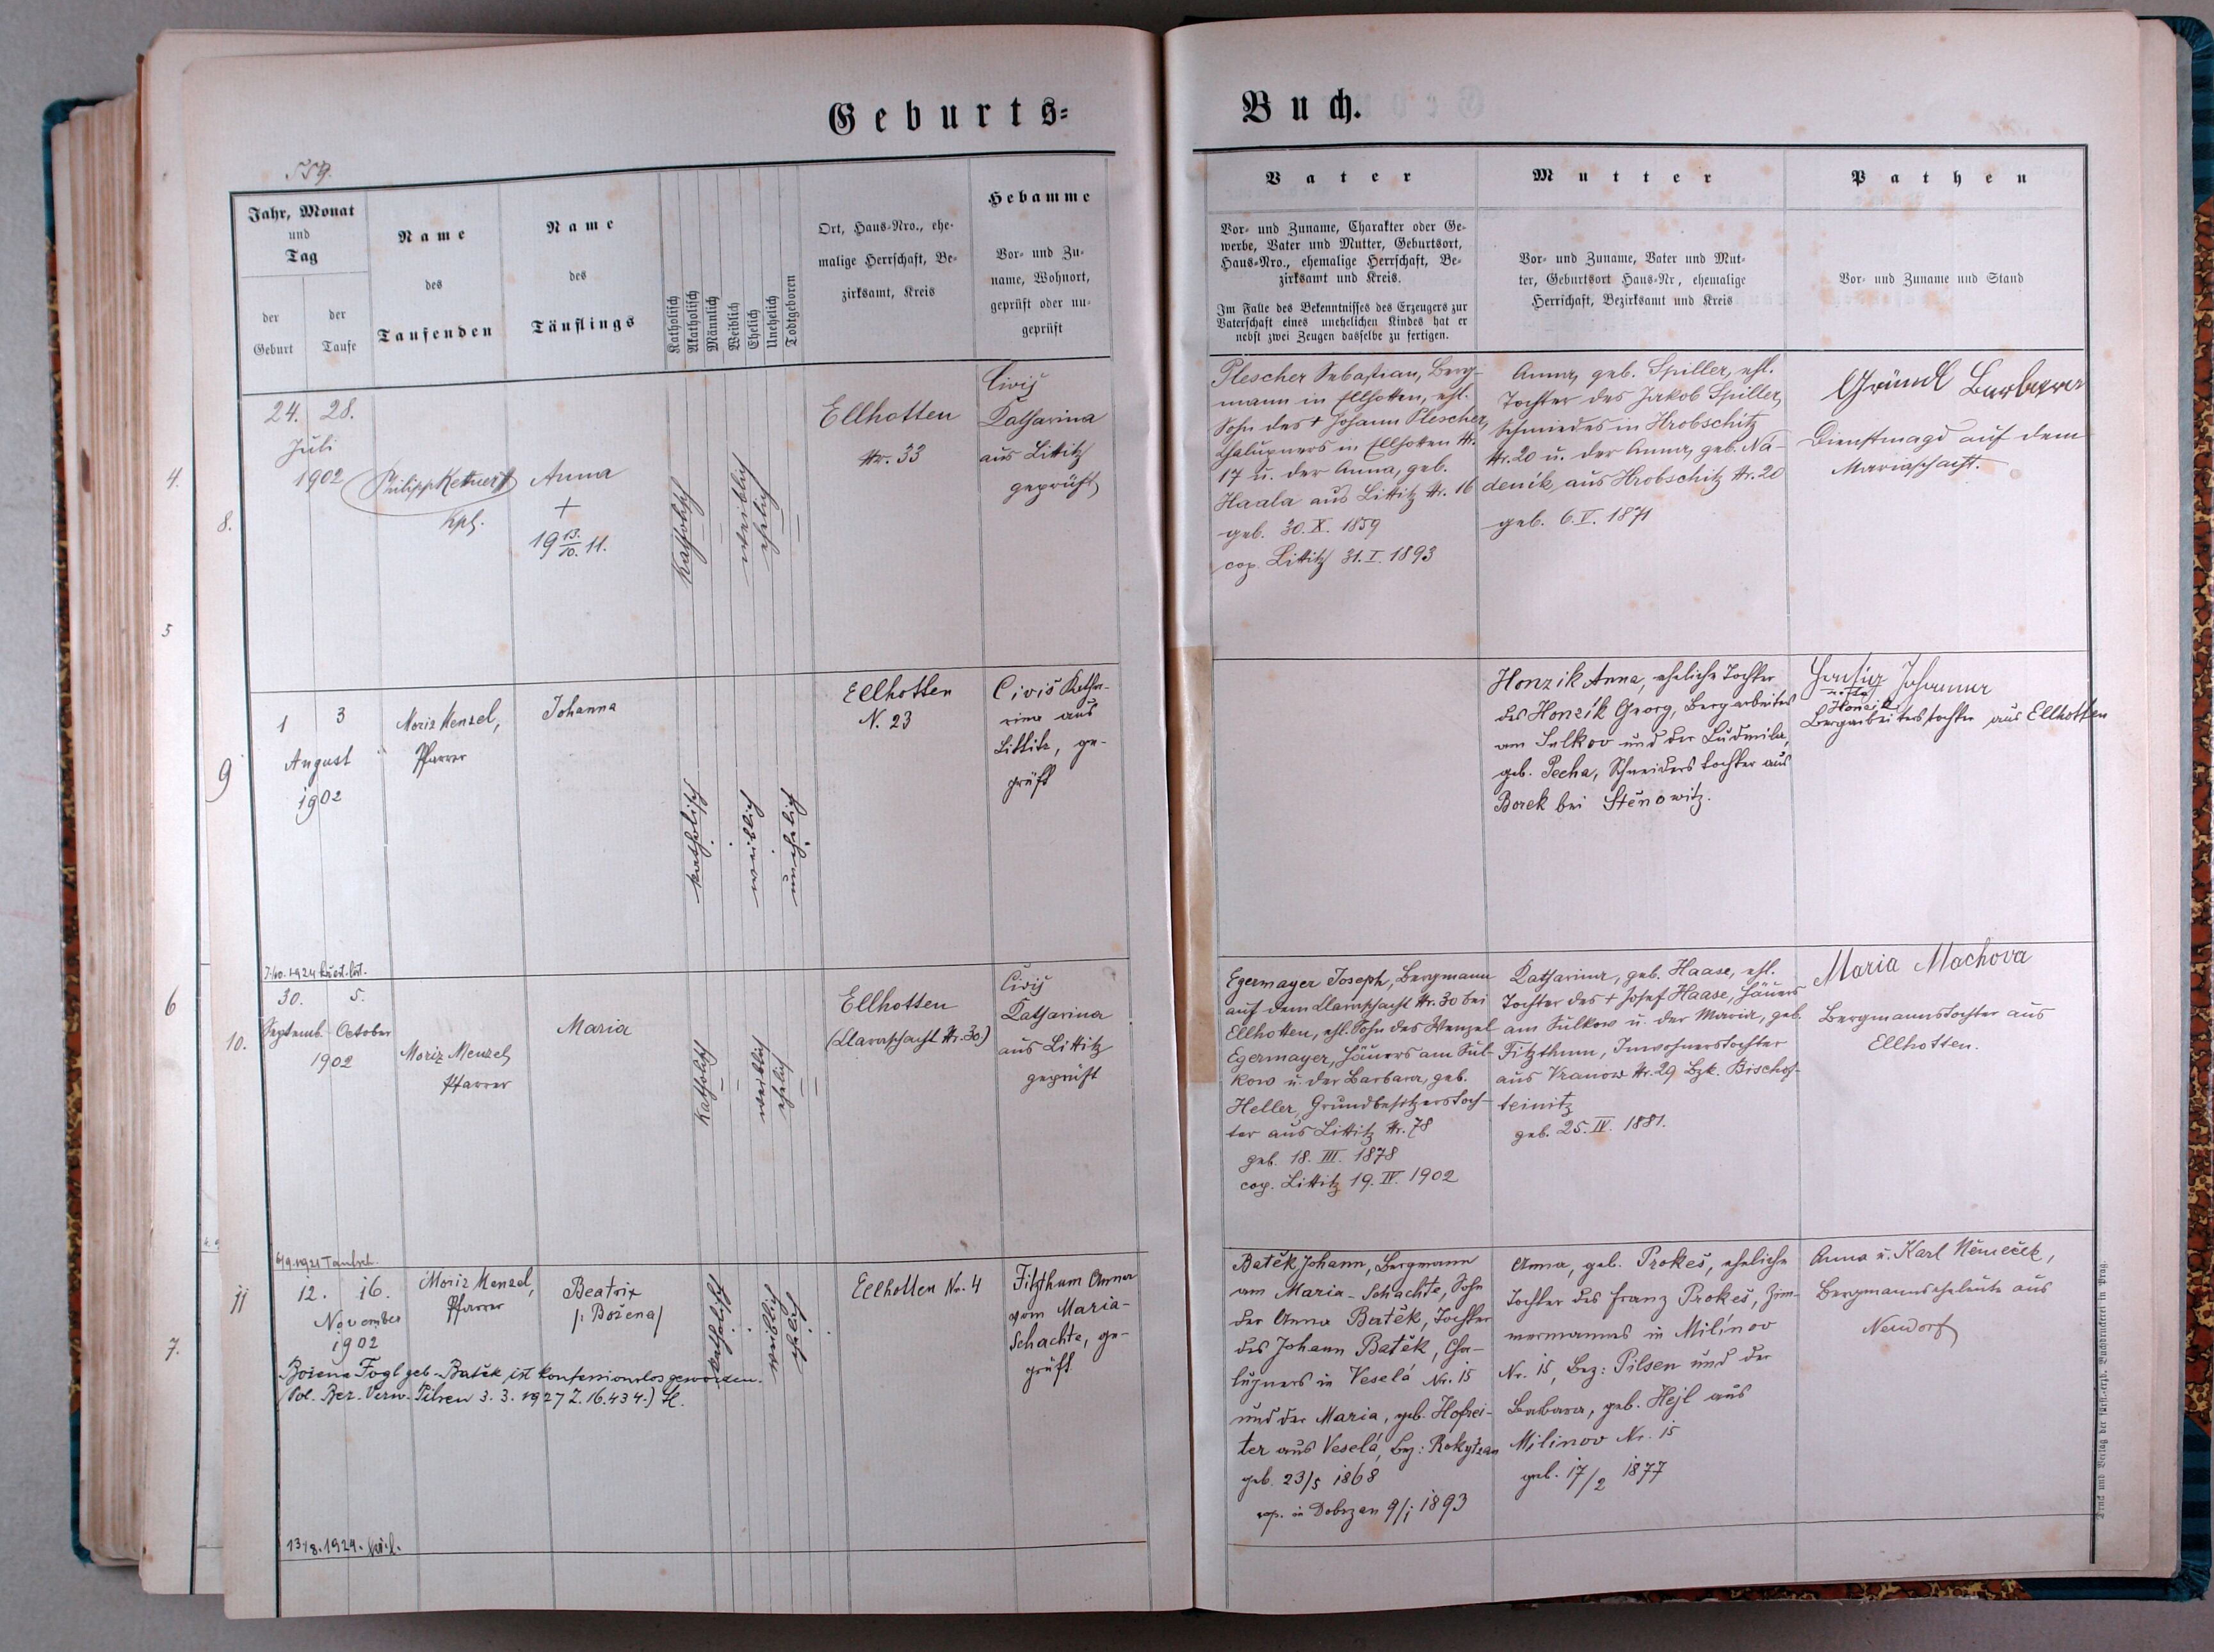 Geburts-
Buch.
559.
Jahr, Monat
und
Tag
der
Geburt
der
Taufe
Name
des
Taufenden
Name
des
Täuflings
Katholisch
Akatholisch
Männlich
Weiblich
Ehelich
Unehelich
Todtgeboren
Ort, Haus-Nro., ehe-
malige Herrschaft, Be-
zirksamt, Kreis
Hebamme
Vor- und Zu-
name, Wohnort,
geprüft oder un-
geprüft
Vater
Vor- und Zuname, Charakter oder Ge-
werbe, Vater und Mutter, Geburtsort,
Haus-Nro., ehemalige Herrschaft, Be-
zirksamt und Kreis.
Im Falle des Bekenntnisses des Erzeugers zur
Vaterschaft eines unehelichen Kindes hat er
nebst zwei Zeugen dasselbe zu fertigen.
Mutter
Vor- und Zuname, Vater und Mut-
ter, Geburtsort Haus-Nr, ehemalige
Herrschaft, Bezirksamt und Kreis
Pathen
Vor- und Zuname und Stand
4.
5
6
7.
8.
24. 28.
Juli
1902
Philipp Kettner
Kpl.
Anna
+
19 13./10. 11.
Katholisch
weiblich
ehelich
Ellhotten
Nr. 33
Civiš
Katharina
aus Littitz
geprüft
Plescher Sebastian, Berg-
mann in Ellhotten, ehl.
Sohn des + Johann Plescher,
Chalupners in Ellhotten Nr.
17 u. der Anna, geb.
Haala aus Littitz Nr. 16
geb. 30. X. 1859
cop. Littitz 31. I. 1893
Anna, geb. Spiller, ehl.
Tochter des Jakob Spiller,
Schmiedes in Hrobschitz
Nr. 20 u. der Anna, geb. Ná-
deník, aus Hrobschitz Nr. 20
geb. 6. V. 1871
Gründl Barbara
Dienstmagd auf dem
Mariaschacht.
9
1 3
August
1902
Moriz Menzel,
Pfarrer
Johanna
katholisch
weiblich
unehelich
Ellhotten
N. 23
Civiš Katha-
rina aus
Littitz, ge-
prüft
Honzik Anna, eheliche Tochter
des Honzík Georg, Bergarbeiters
am Sulkov und der Ludmila,
geb. Pecha, Schneiders tochter aus
Borek bei Stěnowitz.
Johanna
Honzik
Bergarbeiterstochter aus Ellhotten
10.
30. 5.
Septemb. October
1902
Moriz Menzel
Pfarrer
Maria
Katholisch
weiblich
ehelich
Ellhotten
(Claraschacht Nr. 30)
Civiš
Katharina
aus Littitz
geprüft
Egermayer Joseph, Bergmann
auf dem Claraschacht Nr. 30 bei
Ellhotten, ehl. Sohn des Wenzel
Egermayer, Häuers am Sul-
kow u. der Barbara, geb.
Heller, Grundbesitzerstoch-
ter aus Littitz Nr. 78
geb. 18. III. 1878
cop. Littitz 19. IV. 1902
Katharina, geb. Haase, ehl.
Tochter des + Josef Haase, Häuers
am Sulkow u. der Maria, geb.
Fitzthum, Inwohnerstochter
aus Vranow Nr. 29 Bzk. Bischof-
teinitz
geb. 25. IV. 1881.
Maria Machova
Bergmannstochter aus
Ellhotten.
6/9. 1921 Taufsch.
11
12. 16.
November
1902
Moriz Menzel,
Pfarrer
Beatrix
/: Božena/
katholisch
weiblich
ehelich
Ellhotten Nr. 4
Fitzthum Anna
vom Maria-
Schachte, ge-
prüft
Božena Fogl geb. Batěk ist konfessionslos geworden.
(Pol. Bez. Verw. Pilsen 3. 3. 1927 Z. 16.434.) H.
Batěk Johann, Bergmann
am Maria-Schachte, Sohn
der Anna Batěk, Tochter
des Johann Batěk, Cha-
lupners in Veselá Nr. 15
und der Maria, geb. Hofrei-
ter aus Veselá, Bez: Rokytzan
geb. 23/5 1868
cop. in Dobrzan 9/1 1893
Anna, geb. Prokeš, eheliche
Tochter des Franz Prokeš, Zim-
mermannes in Milínov
Nr. 15, Bez: Pilsen und der
Barbara, geb. Hejl aus
Milinov Nr. 15
geb. 17/2 1877
Anna u. Karl Němeček,
Bergmannseheleute aus
Neudorf
13/8. 1924.
Druck und Verlag der fürst.-erzb. Buchdruckerei in Prag.